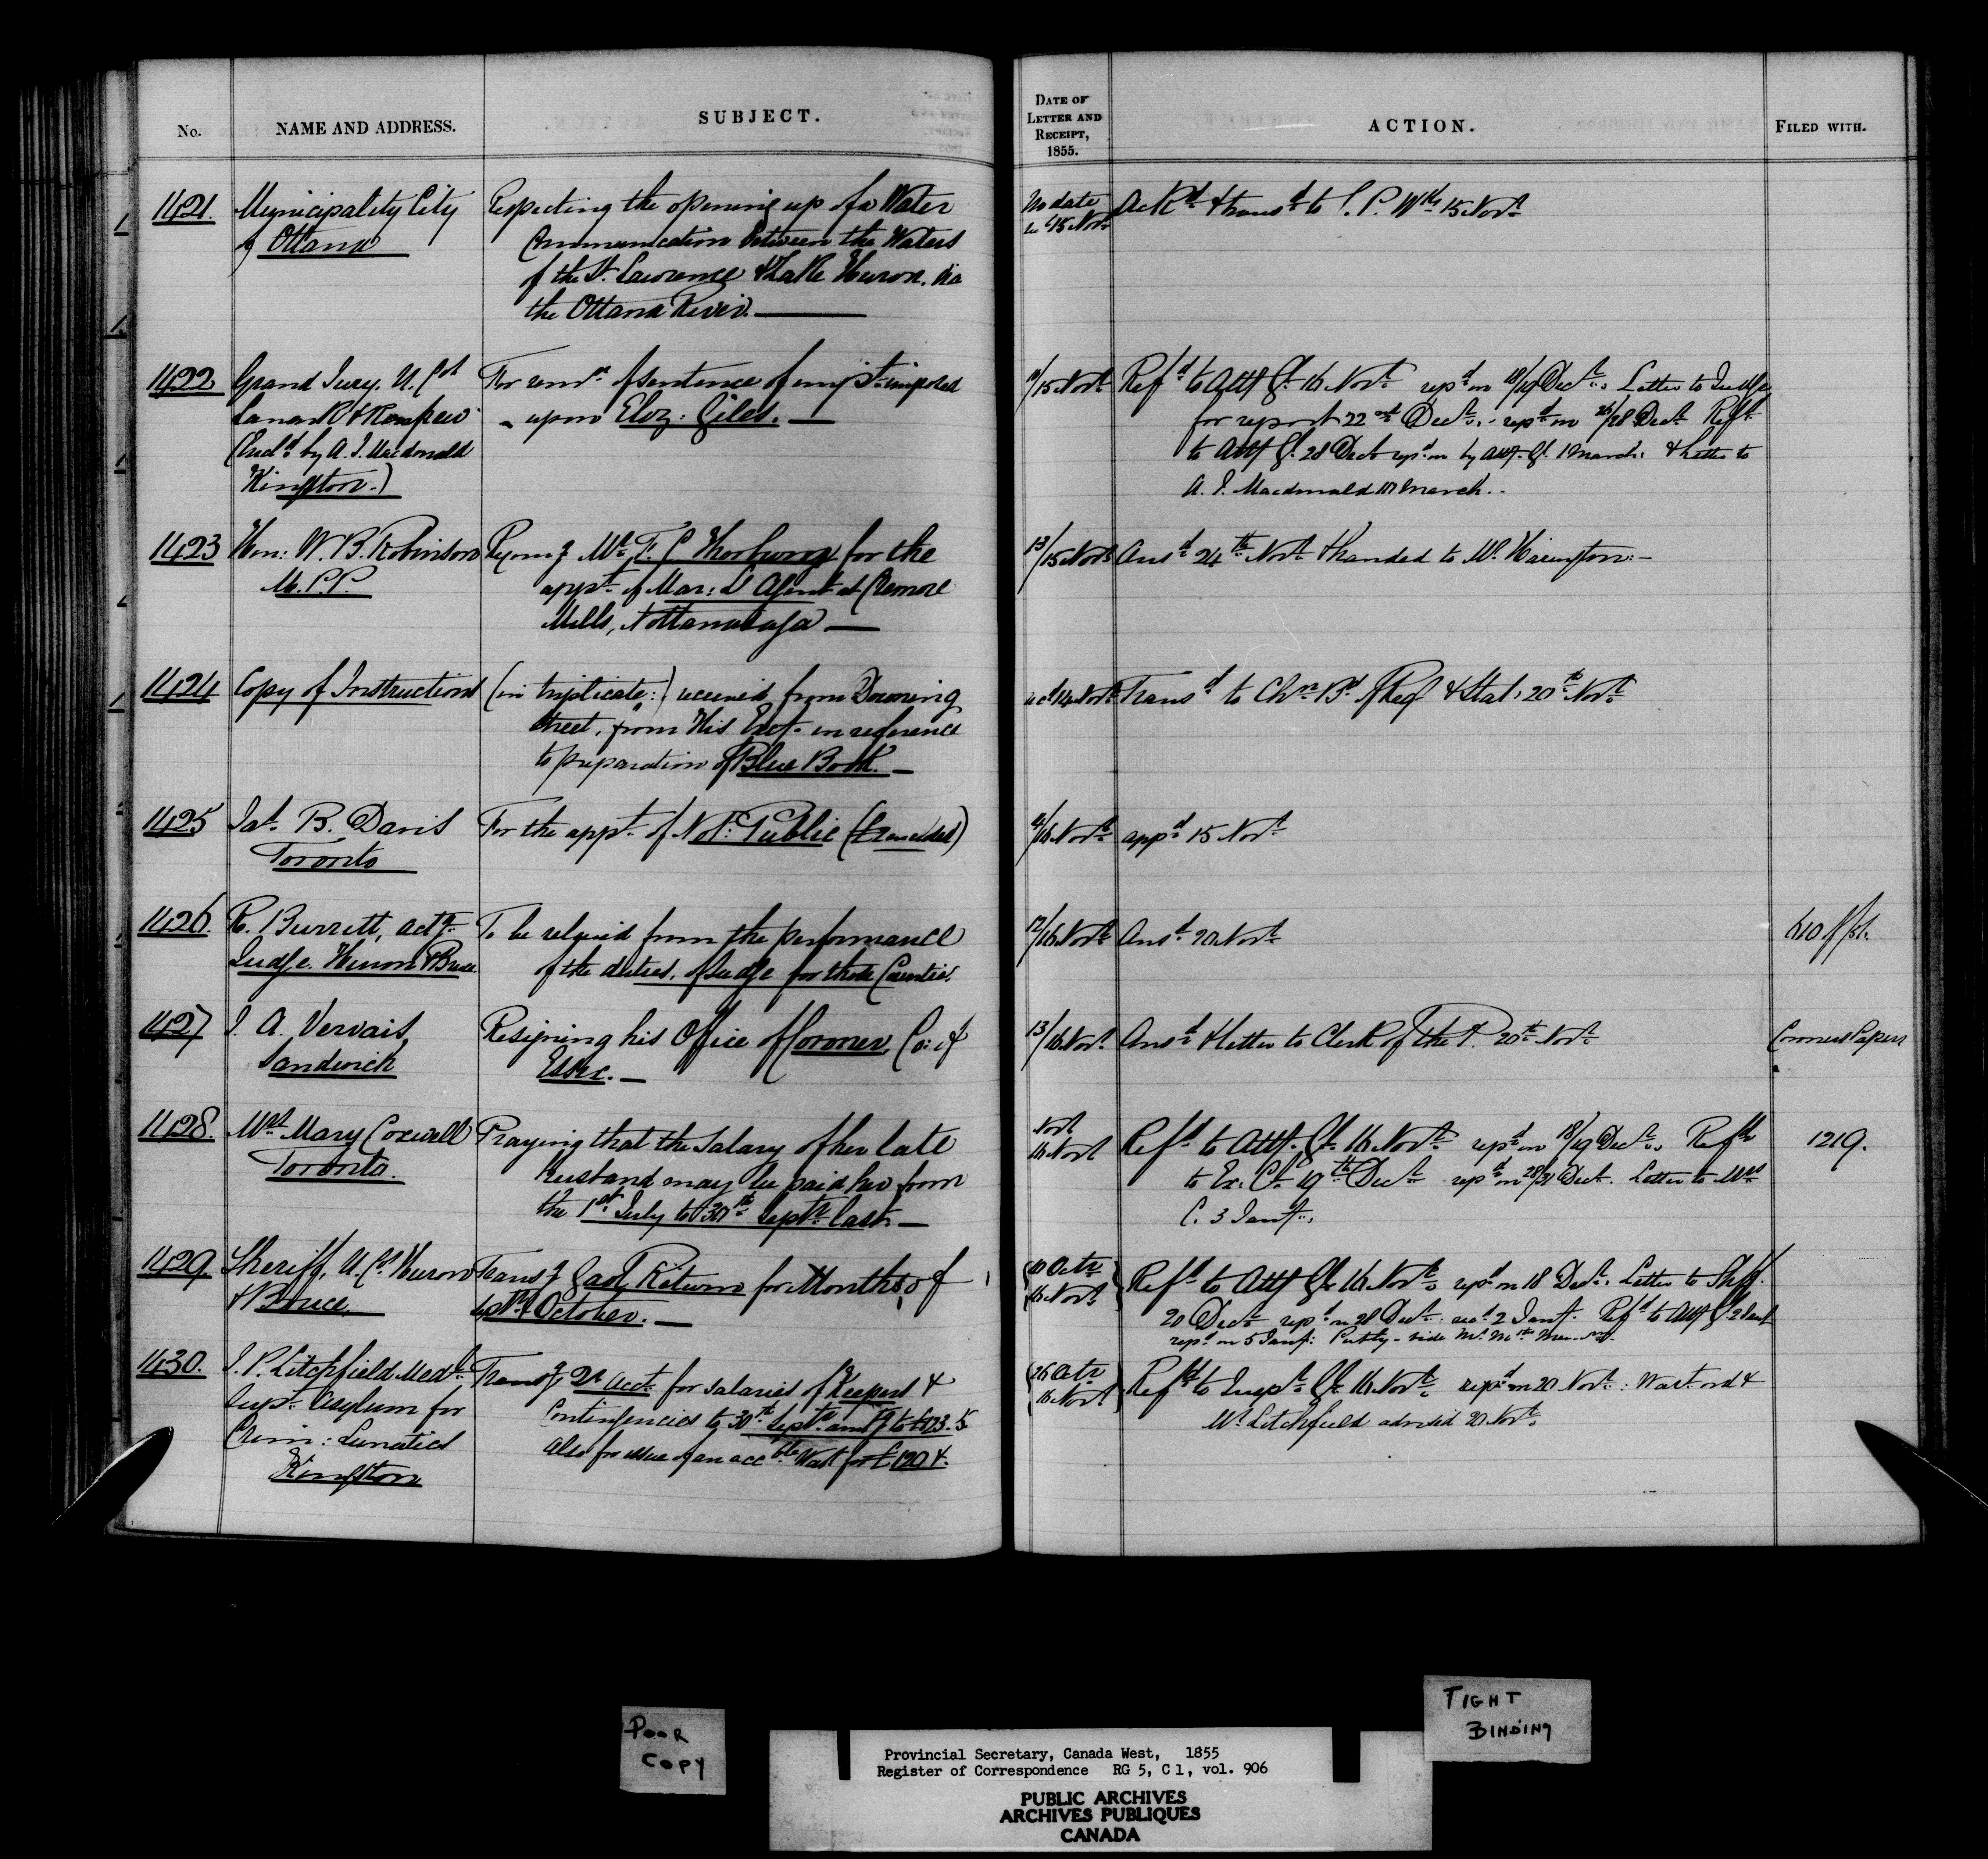 No.
NAME AND ADDRESS.
SUBJECT.
DATE OF
LETTER AND
RECEIPT,
1855.
ACTION.
FILED WITH.
1421.
Municipality City
of Ottawa
Respecting the opening up of a Water
Communication between the Waters
of the St. Lawrence & Lake Huron, via
the Ottawa River. —
No date
15 Novr
Ackd & transd to C. P. Wks 15 Novr
1422
Grand Jury, U. Cos
Lanark & Renfrew
(Encld by A. J. Macdonald
Kingston.)
For remn of sentence of impt imposed
upon Eliz: Giles. —
/15 Novr
Refd to Atty Gl 16 Novr repd on 18/19 Decr Letter to Judge
for report 22nd Decr repd on 26/28 Decr Refd
to Atty Gl 28 Decr repd on by Atty Gl 1 March & Letter to
A. J. Macdonald March.
1423
Hon: W. B. Robinson
M. P. P.
Recomg Mr T. C. Thorburn for the
appt of Mar: L Agent at Creemore
Mills, Nottawasaga —
13/15 Novr
Ansd 24th Novr & handed to Mr Harington. —
1424
Copy of Instructions
(in triplicate:) received from Downing
Street, from His Excy in reference
to preparation of Blue Book. —
recd 14 Novr
Transd to Chn Bd of Reg & Stat: 20th Novr
1425
Jas. B. Davis
Toronto
For the appt of Noty Public (Cancelled)
/16 Novr
appd 15 Novr
1426.
R. Burritt, actg
Judge. Huron & Bruce.
To be relieved from the performance
of the duties, of Judge for those Counties.
12/16 Novr
Ansd 20 Novr
610 of /51.
1427
J. A. Vervais,
Sandwich
Resigning his Office of Coroner, Co: of
Essex. —
13/16 Novr
Ansd & letter to Clerk of the P. 20th Novr
Coroners Papers
1428.
Mrs Mary Coxwell
Toronto.
Praying that the Salary of her late
husband may be paid her from
the 1st July to 30th Septr last —
Novr
16 Novr
Refd to Atty Gl 16 Novr repd on 18/19 Decr Refd
to Ex: Cl 19th Decr repd on 28/31 Decr. Letter to Mrs
C. 3 Jany.
1219.
1429.
Sheriff, U. Cos Huron
& Bruce.
Transg Gaol Returns for Months of
Septr & October. —
10 Octr
16 Novr
Refd to Atty Gl 16 Novr repd on 18 Decr. Letter to Shff.
20 Decr repd on 28 Decr recd 2 Jany. Refd to Atty Gl 2 Jany
repd on 5 Jany:
1430.
J. P. Litchfield Medl
Supt. Asylum for
Crim: Lunatics
Kingston
Transg Qr Acct for salaries of Keepers &
Contingencies to 30th Septr amtg to £123.5
Also for issue of an accble Wart for £120 &.
26 Octr
16 Novr
Refd to Inspr Gl 16 Novr repd on 20 Novr: Wart ord &
Mr Litchfield advised 20 Novr
POOR
COPY
TIGHT
BINDING
Provincial Secretary, Canada West, 1855
Register of Correspondence RG 5, C 1, vol. 906
PUBLIC ARCHIVES
ARCHIVES PUBLIQUES
CANADA